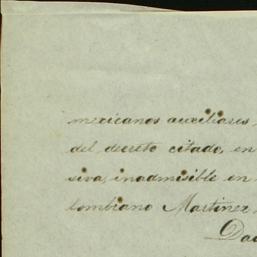 mexicanos auxiliares,
del decreto citado, en
siva, inadmisible en
lombiano Martinez
Dad